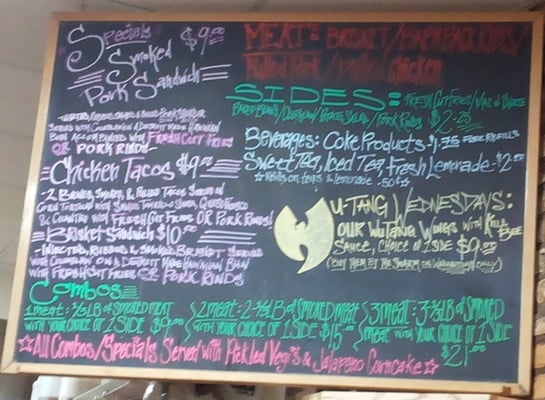 Specials $9.00
Smoked
Pork Sandwich
OR PORK RINDS
Chicken Tacos $9.00
2 Bones, Smoked, & Pulled Tacos Served on
& Cilantro with Fresh Cut Fries OR Pork Rinds!
Brisket Sandwich $10.00
Injected, Rubbed, & Smoked Brisket Served
with Coleslaw on a Detroit Made Hawaiian Bun
with Fresh Cut Fries OR Pork Rinds
MEAT: BRISKET/BABY BACK RIBS/
Pulled Pork / Pulled Chicken
SIDES: Fresh Cut Fries / Mac n Cheese
Baked Beans / Coleslaw / Potato Salad / Pork Rinds $2.25
Beverages: Coke Products $1.75 free refills
Sweet Tea, Iced Tea, Fresh Lemonade $2.50
Refills on teas & lemonade .50¢
U-TANG WEDNESDAYS:
our WuTang Wings with Kill Bee
Sauce, choice of 1 side $9.00
(Buy them by the swarm on Wednesday only)
Combos
1 meat: 1/2 lb of smoked meat
with your choice of 1 side $9.00
2 meat: 2-1/2 lb of smoked meat
with your choice of 1 side $15.00
3 meat: 3-1/2 lb of smoked
meat with your choice of 1 side
$21.00
☆All Combos/Specials Served with Pickled Vegi's & Jalapeno Corncake☆